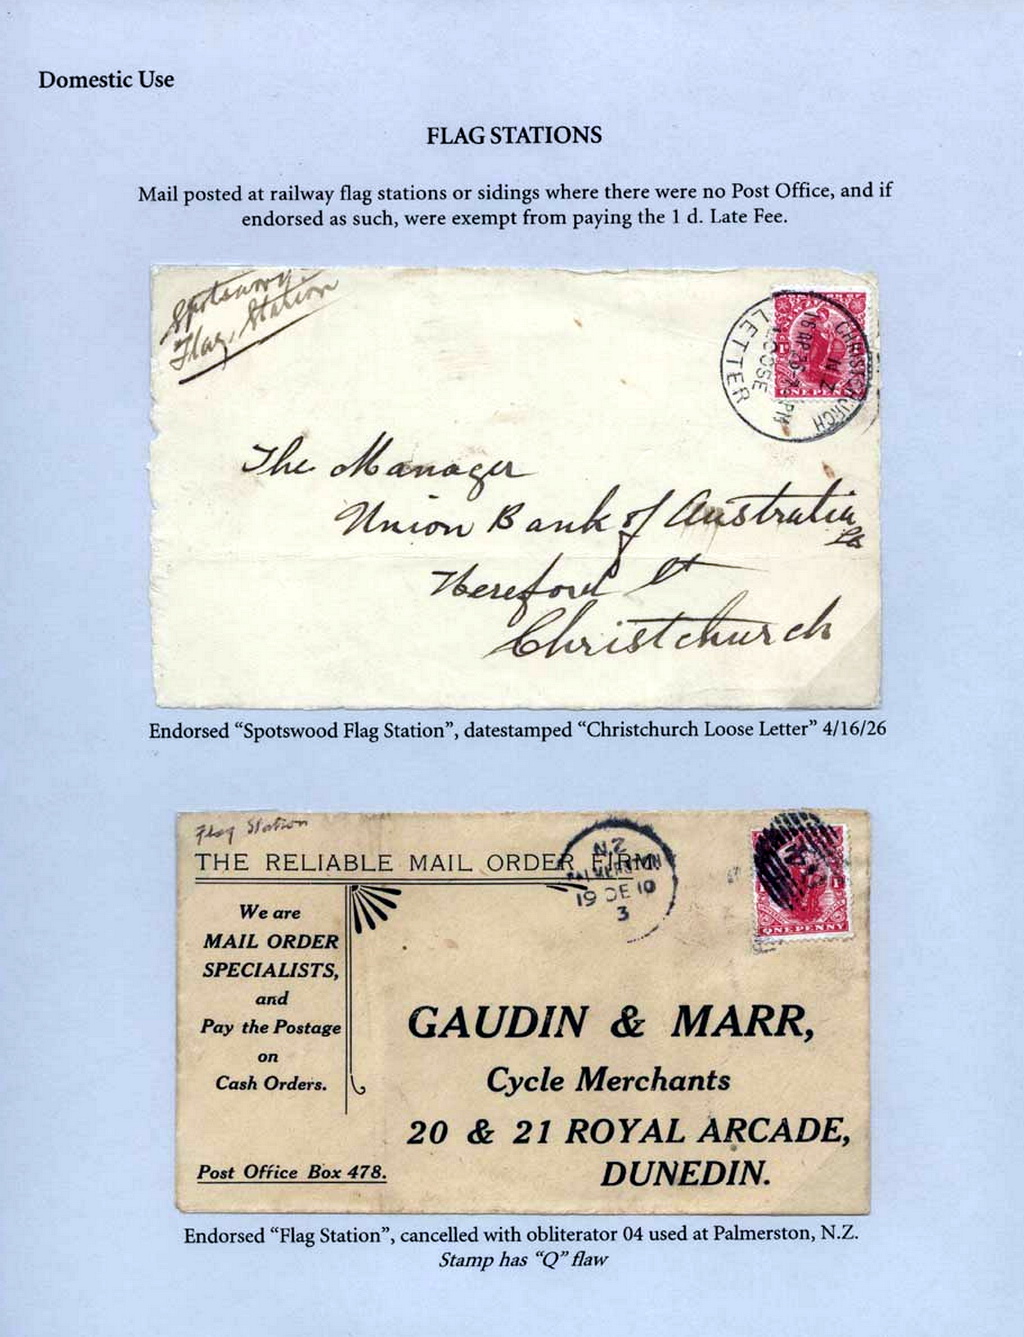 Domestic Use
FLAG STATIONS
Mail posted at railway flag stations or sidings where there were no Post Office, and if
endorsed as such, were exempt from paying the 1 d. Late Fee.
Flag Station
LOOSE LETTER
CHRISTCHURCH
N.Z
ONE PENNY
The Manager
Union Bank of Australia
Hereford St
Christchurch
Endorsed “Spotswood Flag Station”, datestamped “Christchurch Loose Letter” 4/16/26
Flag Station
THE RELIABLE MAIL ORDER FIRM
N.Z
PALMERSTON
19 DE 10
3
ONE PENNY
We are
MAIL ORDER
SPECIALISTS,
and
Pay the Postage
on
Cash Orders.
Post Office Box 478.
GAUDIN & MARR,
Cycle Merchants
20 & 21 ROYAL ARCADE,
DUNEDIN.
Endorsed “Flag Station”, cancelled with obliterator 04 used at Palmerston, N.Z.
Stamp has “Q” flaw